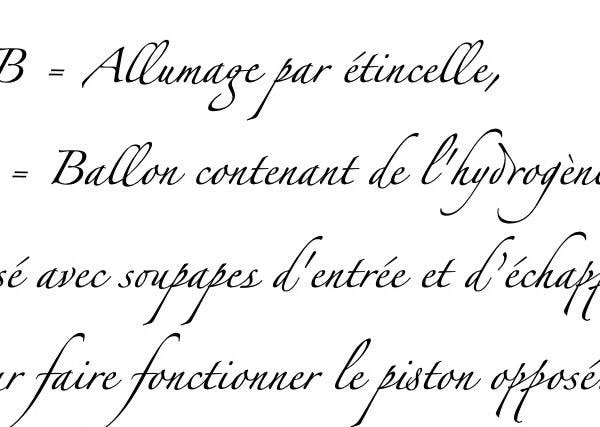 B = Allumage par étincelle,
= Ballon contenant de l'hydrogène
sé avec soupapes d'entrée et d’échapp
ur faire fonctionner le piston opposé.